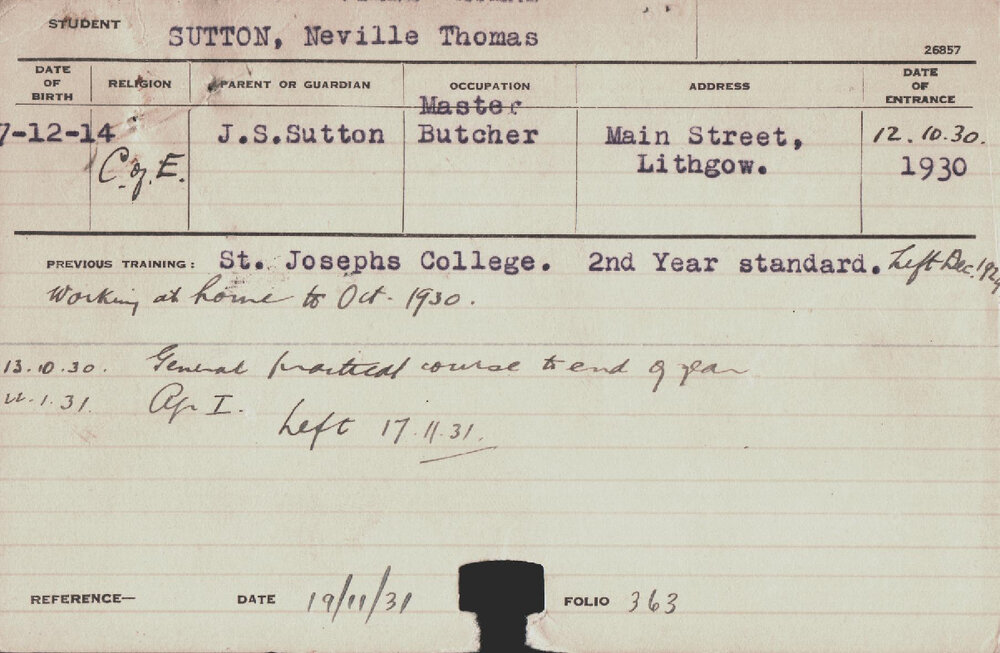 STUDENT SUTTON, Neville Thomas
26857
DATE OF BIRTH RELIGION PARENT OR GUARDIAN OCCUPATION ADDRESS DATE OF ENTRANCE
Master
7-12-14 J.S.Sutton Butcher Main Street, 12.10.30.
C. of E. Lithgow. 1930
PREVIOUS TRAINING: St. Josephs College. 2nd Year standard. Left Dec. 1929
Working at home to Oct. 1930.
13.10.30. General practical course to end of year
1.31. Ag I.
Left 17.11.31.
REFERENCE— DATE 19/11/31 FOLIO 363